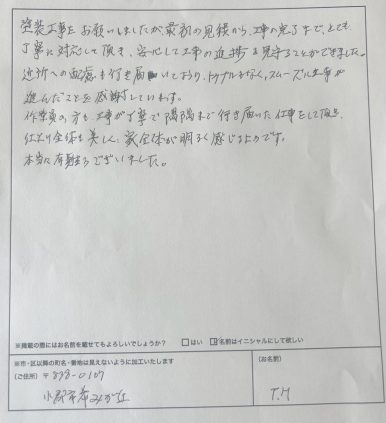 塗装工事をお願いしましたが、最初の見積から、工事の完了まで、とても
丁寧に対応して頂き、安心して工事の進捗を見守ることができました。
近所への配慮も行き届いており、トラブルもなく、スムーズに工事が
進んだことを感謝しています。
作業員の方も、工事が丁寧で隅隅まで行き届いた仕事をして頂き、
仕上り全体も美しく、家全体が明るく感じるようです。
本当に有難うございました。
※掲載の際にはお名前を載せてもよろしいでしょうか？ □はい ☑名前はイニシャルにして欲しい
※市・区以降の町名・番地は見えないように加工いたします
(ご住所) 〒 838-0107
小郡市希みが丘
(お名前)
T.M